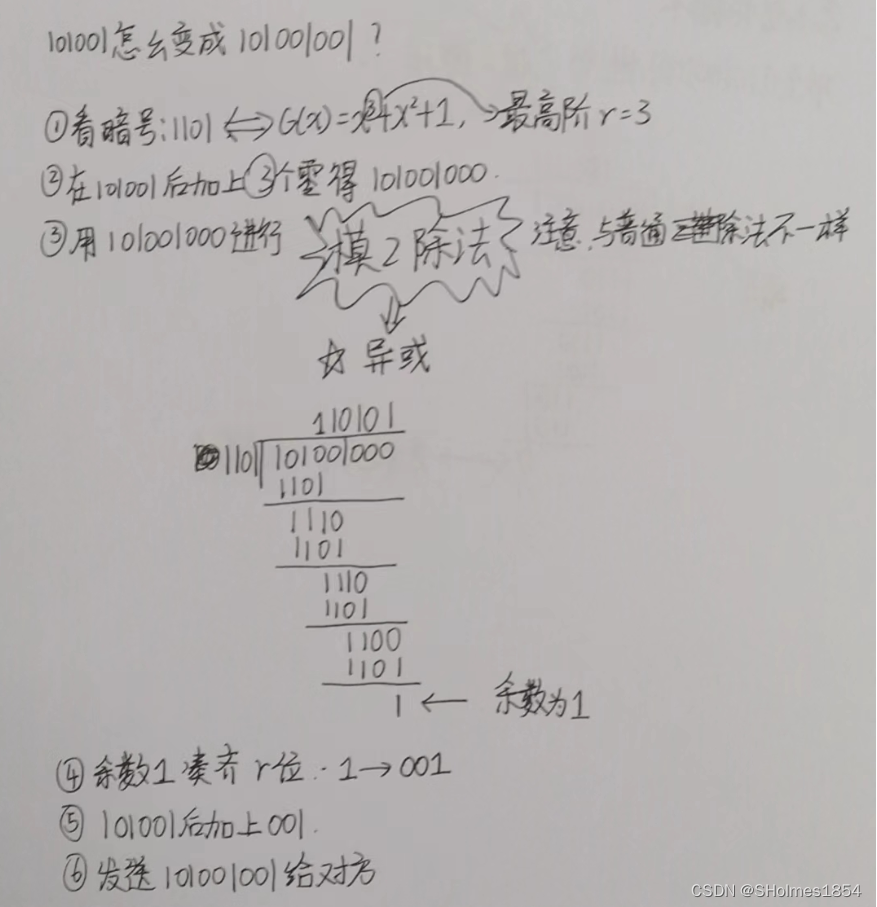 101001怎么变成101001001？
①看暗号:1101⇔G(x)=x³+x²+1,→最高阶r=3
②在101001后加上③个零得101001000.
③用101001000进行 模2除法 注意,与普通除法不一样
☆异或
110101
1101 101001000
1101
1110
1101
1110
1101
1100
1101
1 ← 余数为1
④余数1凑齐r位.1→001
⑤101001后加上001.
⑥发送101001001给对方
CSDN @SHolmes1854